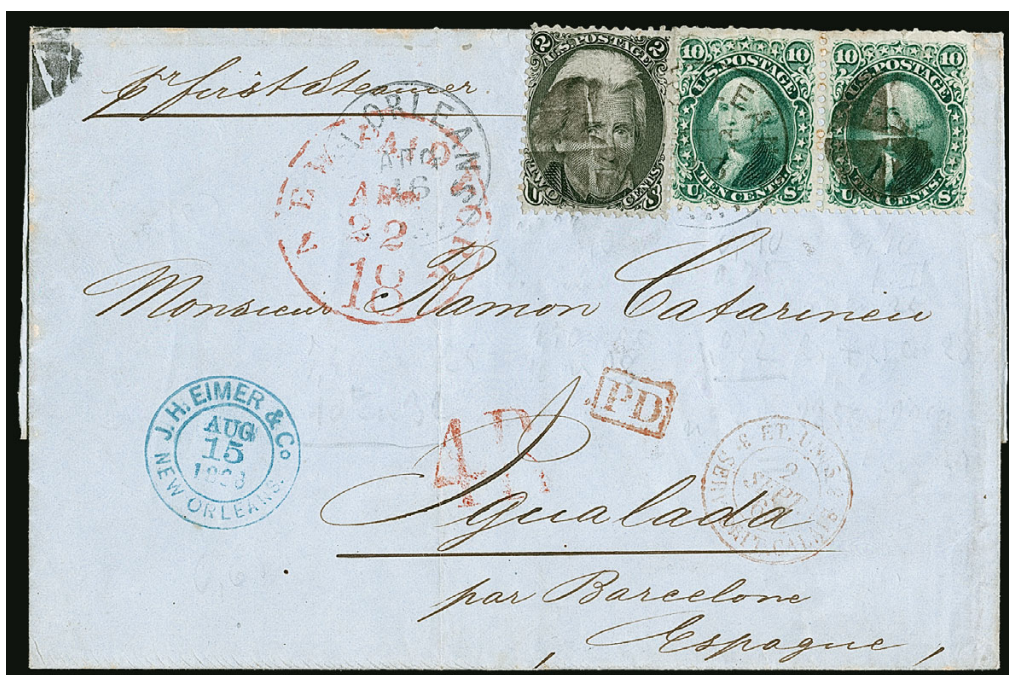 pr first Steamer
2 U.S. POSTAGE 2
U TWO CENTS S
10 U.S. POSTAGE 10
U TEN CENTS S
10 U.S. POSTAGE 10
U TEN CENTS S
NEW ORLEANS
AUG
16
NEW YORK
PAID
AUG
22
18
Monsieur Ramon Catarineu
PD
J. H. EIMER & Co
AUG
15
NEW ORLEANS.
4R
ET. UNIS
2
SEPT
Igualada
par Barcelone
Espagne,